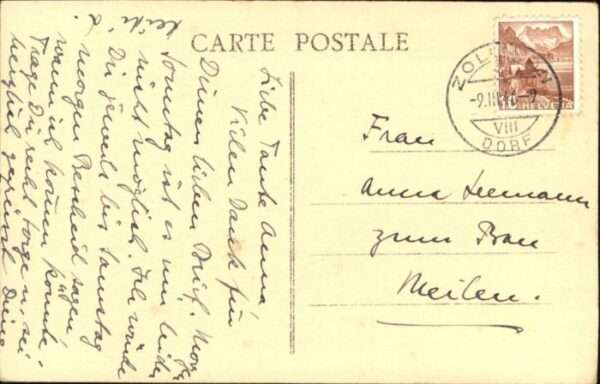 CARTE POSTALE
ZOLLIKON
-9.III.
VIII
DORF
10
HELVETIA
Frau
Anna Leemann
zum Bau
Meilen.
Liebe Tante Anna
Vielen Dank für
Deinen lieben Brief.
Sonntag ist es mir leider
nicht möglich. Ich würde
Dir jeweils bis Samstag
morgen Bescheid sagen
wann ich kommen könnte.
Trage Dir recht Sorge u. sei
herzlich gegrüsst Deine